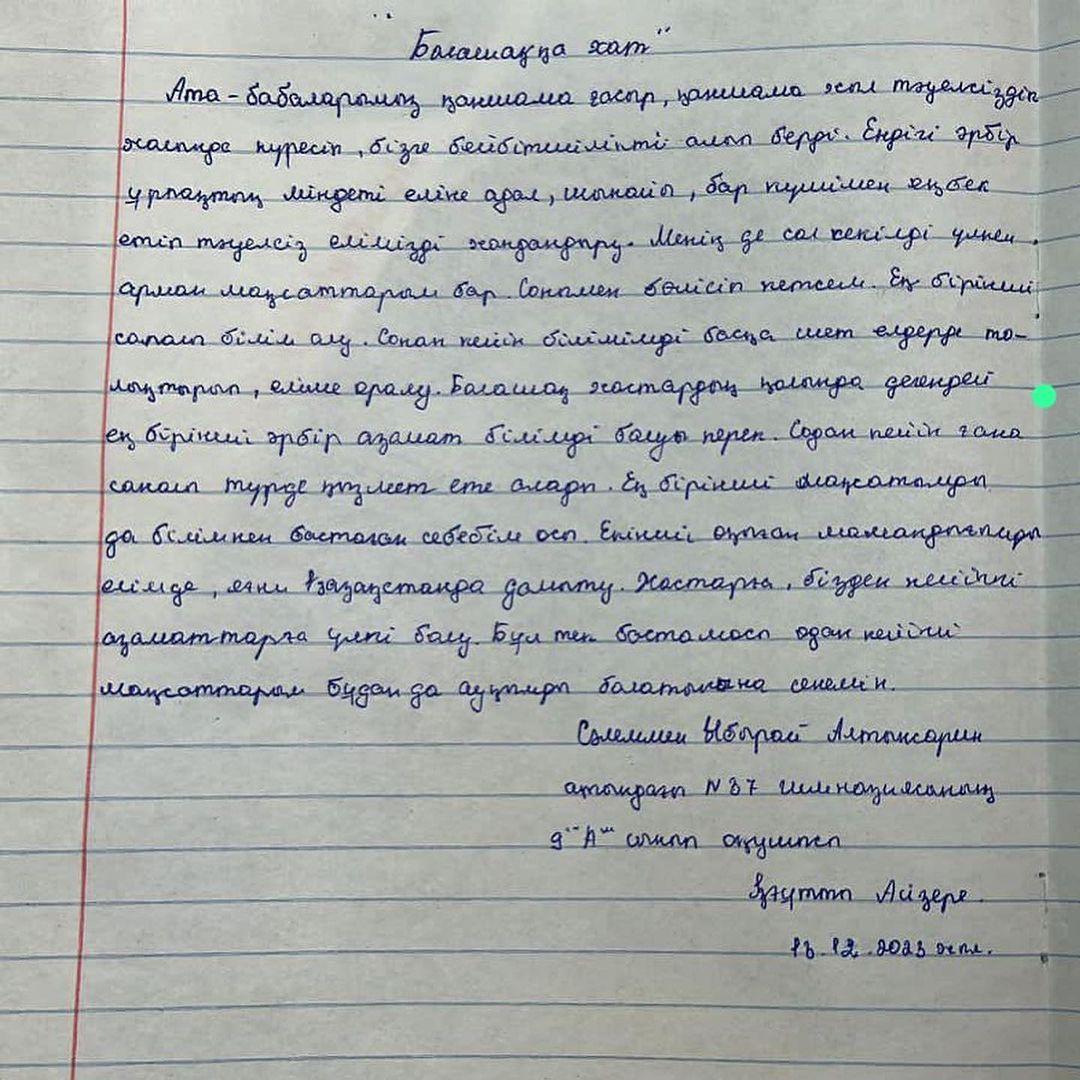 "Болашаққа хат"
Ата-бабаларымыз қаншама ғасыр, қаншама жыл тәуелсіздік
жолында күресіп, бізге бейбітшілікті алып берді. Ендігі әрбір
ұрпақтың міндеті еліне адал, шынайы, бар күшімен еңбек
етіп тәуелсіз елімізді жандандыру. Менің де сол секілді үлкен
арман мақсаттарым бар. Сонымен бөлісіп кетсем. Ең бірінші
сапалы білім алу. Сонан кейін білімімді басқа шет елдерде то-
лықтырып, еліме оралу. Болашақ жастардың қолында дегендей
ең бірінші әрбір азамат білімді болуы керек. Содан кейін ғана
саналы түрде қызмет ете алады. Ең бірінші мақсатымды
да білімнен бастаған себебім осы. Екінші оқыған мамандығымды
елімде, яғни Қазақстанда дамыту. Жастарға, бізден кейінгі
азаматтарға үлгі болу. Бұл тек бастамасы одан кейінгі
мақсаттарым бұдан да ауқымды болатынына сенемін.
Сәлеммен Ыбырай Алтынсарин
атындағы N 37 гимназиясының
9 "А" сынып оқушысы
Асізере
13.12.2023 жыл.